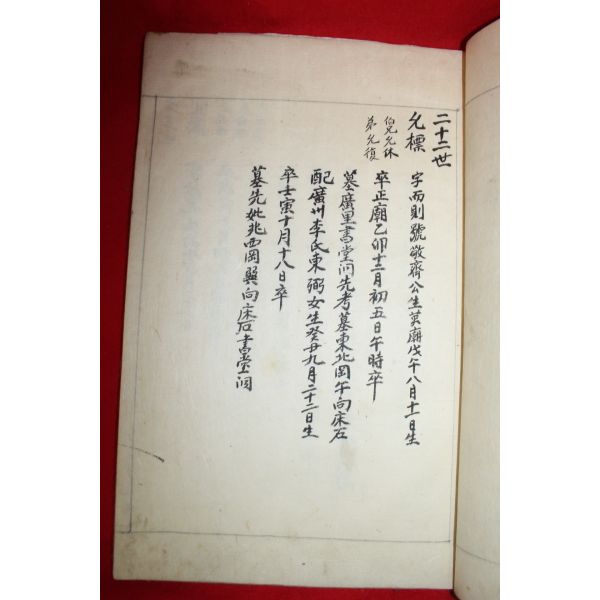 二十二世
允標
伯兄允休
弟允復
字而則號敬齊公生英廟戊午八月十一日生
卒正廟乙卯十二月初五日午時卒
墓廣里書堂洞先考墓東北岡午向床石
配廣州李氏東弼女生癸丑九月二十二日生
卒壬寅十月十八日卒
墓先妣兆西岡巽向床石書堂洞